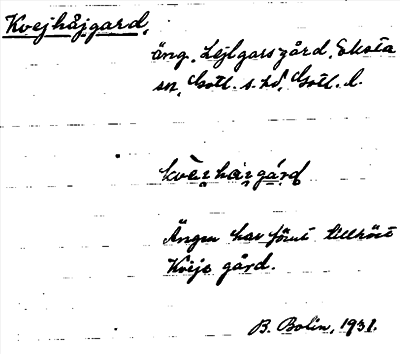 Kvejhåjgard,
äng, Lejlgarsgård, Eksta
sn, Gotl. s. hd, Gotl. l.
kvèrhàrgárd
Ängen har förut tillhört
Kveje gård.
B. Bolin, 1931.